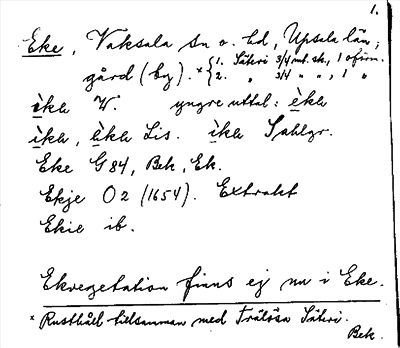 1.
Eke, Vaksala sn o. hd, Upsala län;
gård (by).* { 1. Säteri 3/4 mt. sk., 1 oförm.
2. " 3/4 " ", 1 "
èka W. yngre uttal: èka
ìka, èka Lis. ìka Sahlgr.
Eke G 84, Bek, Ek.
Ekje O 2 (1654). Extrakt
Ekie ib.
Ekvegetation finns ej nu i Eke.
* Rusthåll tillsamman med Frälösa Säteri.
Bek.